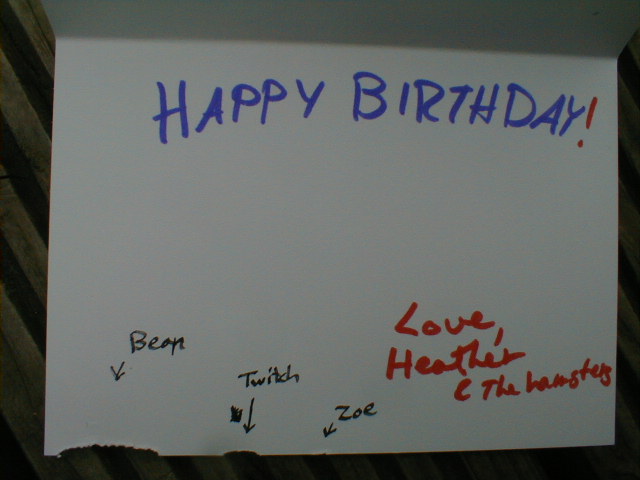 HAPPY BIRTHDAY!
Love,
Heather
& The hamsters
Bean
Twitch
Zoe